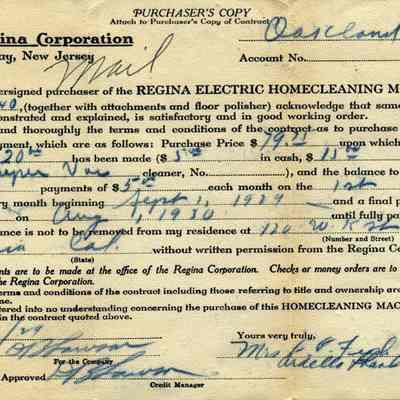 PURCHASER'S COPY
Attach to Purchaser's Copy of Contract
gina Corporation Oakland
ay, New Jersey Mail Account No.
ersigned purchaser of the REGINA ELECTRIC HOMECLEANING MA
40, (together with attachments and floor polisher) acknowledge that same
onstrated and explained, is satisfactory and in good working order.
and thoroughly the terms and conditions of the contract as to purchase
yment, which are as follows: Purchase Price $ upon which
20 00 has been made ($ 5 00 in cash, $ 15 00
Vac cleaner, No. ), and the balance to
payments of $ 5 00 each month on the 1st
ry month beginning Sept 1, 1929 and a final p
on Aug 1, 1930 until fully pa
ance is not to be removed from my residence at 120 W
(Number and Street)
Cal. without written permission from the Regina Co
(State)
nts are to be made at the office of the Regina Corporation. Checks or money orders are to
he Regina Corporation.
erms and conditions of the contract including those referring to title and ownership are
me.
tered into no understanding concerning the purchase of this HOMECLEANING MAC
in the contract quoted above.
Yours very truly,
Mrs
For the Company
Approved
Credit Manager